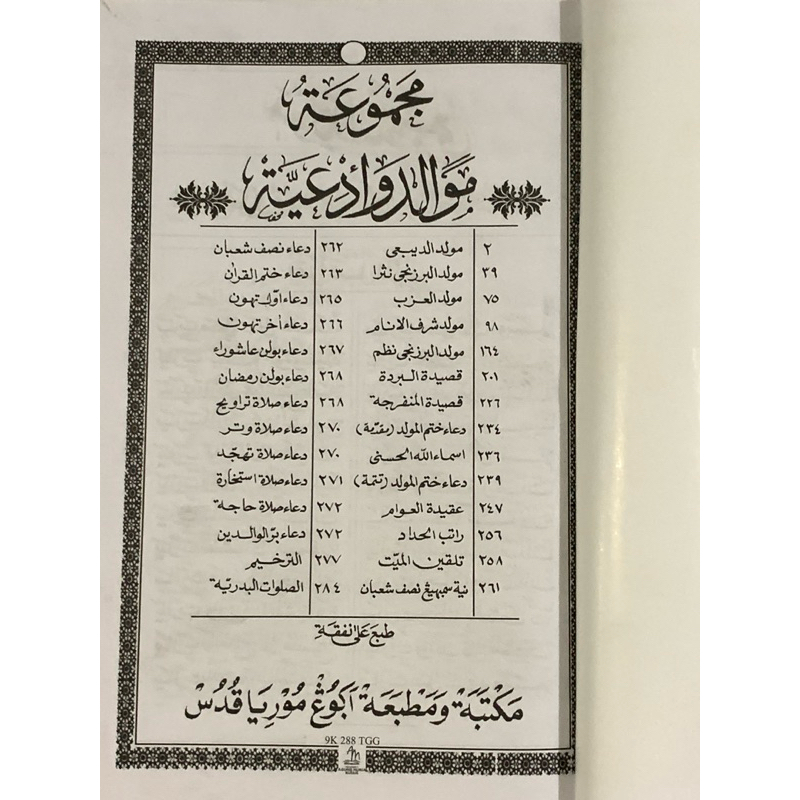 مجموعة
موالد وأدعية
٢ مولد الديبعى ٢٦٢ دعاء نصف شعبان
٣٩ مولد البرزنجى نثرا ٢٦٣ دعاء ختم القران
٧٥ مولد العزب ٢٦٥ دعاء اول تهون
٩٨ مولد شرف الانام ٢٦٦ دعاء أخر تهون
١٦٤ مولد البرزنجى نظم ٢٦٧ دعاء بولن عاشوراء
٢٠١ قصيدة البردة ٢٦٨ دعاء بولن رمضان
٢٢٦ قصيدة المنفرجة ٢٦٨ دعاء صلاة تراويح
٢٣٤ دعاء ختم المولد (مقدمة) ٢٧٠ دعاء صلاة وتر
٢٣٦ اسماء الله الحسنى ٢٧٠ دعاء صلاة تهجد
٢٣٩ دعاء ختم المولد (تتمة) ٢٧١ دعاء صلاة استخارة
٢٤٧ عقيدة العوام ٢٧٢ دعاء صلاة حاجة
٢٥٦ راتب الحداد ٢٧٢ دعاء بر الوالدين
٢٥٨ تلقين الميت ٢٧٧ الترخيم
٢٦١ نية سمبهيڠ نصف شعبان ٢٨٤ الصلوات البدرية
طبع على نفقة
مَكْتَبَةْ وَمَطْبَعَةْ اَبُوڠْ مُوْرِيَا قُدُسْ
9K 288 TGG